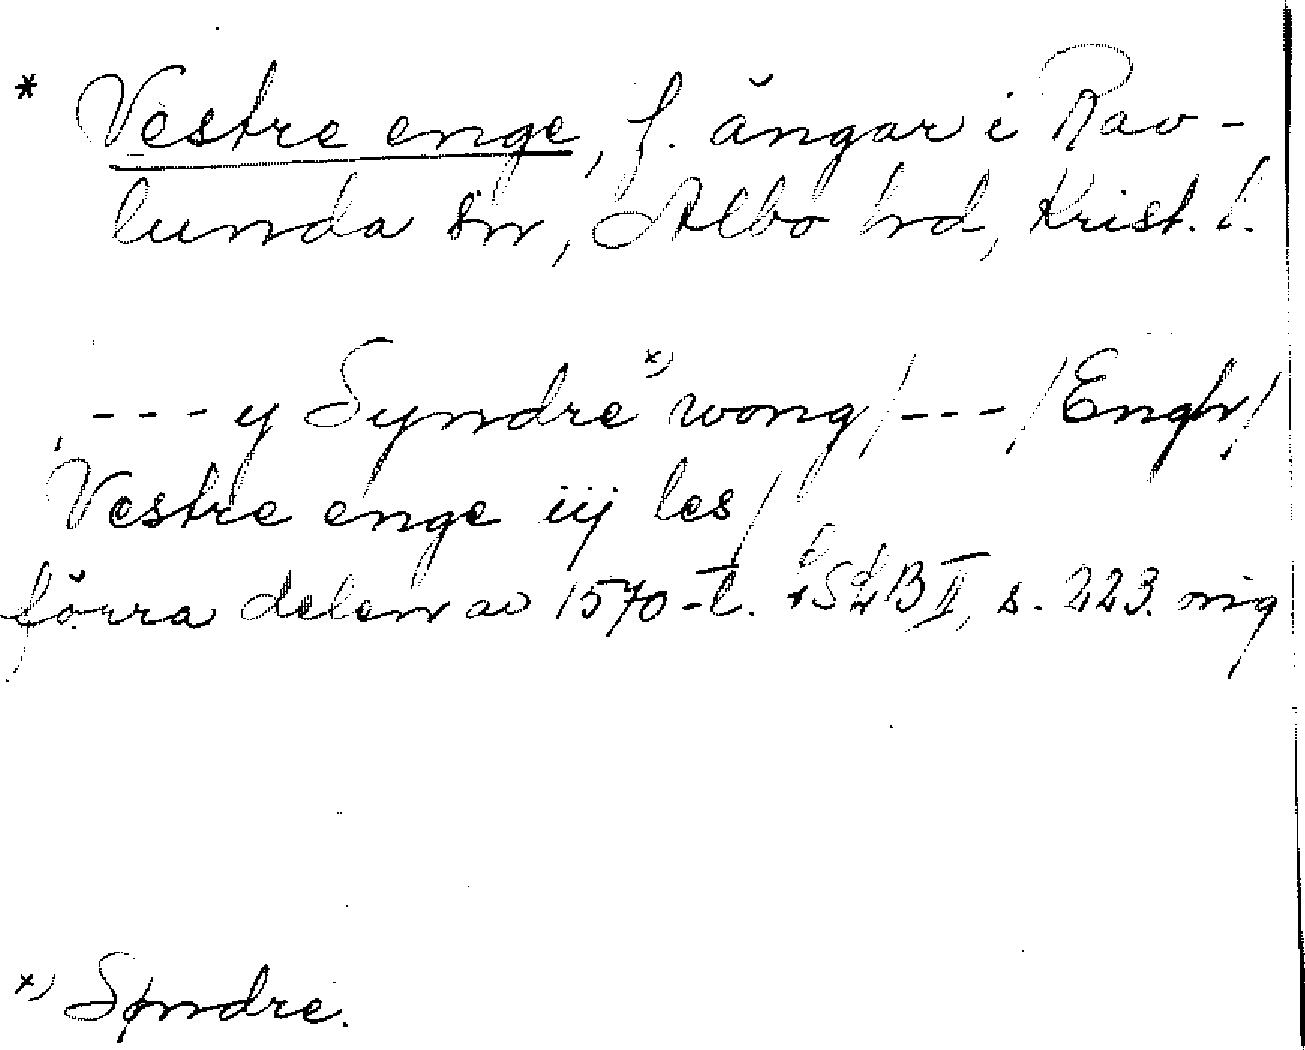 * Vestre enge, f. ängar i Rav-
lunda sn, Albo hd, Krist. l.
--- y Syndre*) wong/---/Engh/
Vestre enge iij les/
förra delen av 1570-t. LSB II, s. 223. mg
*) Spndre.